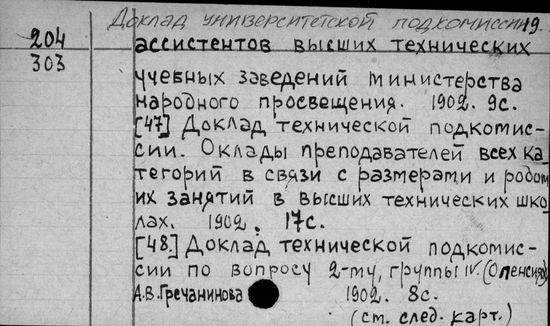 Доклад университетской подкомиссии 19.
204
303
ассистентов высших технических
учебных заведений министерства
народного просвещения. 1902. 9с.
[47] Доклад технической подкомис-
сии. Оклады преподавателей всех ка
тегорий в связи с размерами и родом
их занятий в высших технических шко
лах. 1902. 17с.
[48] Доклад технической подкомис-
сии по вопросу 2-му, группы IV. (О пенсиях)
А.В.Гречанинова 1902. 8с.
(см. след. карт.)